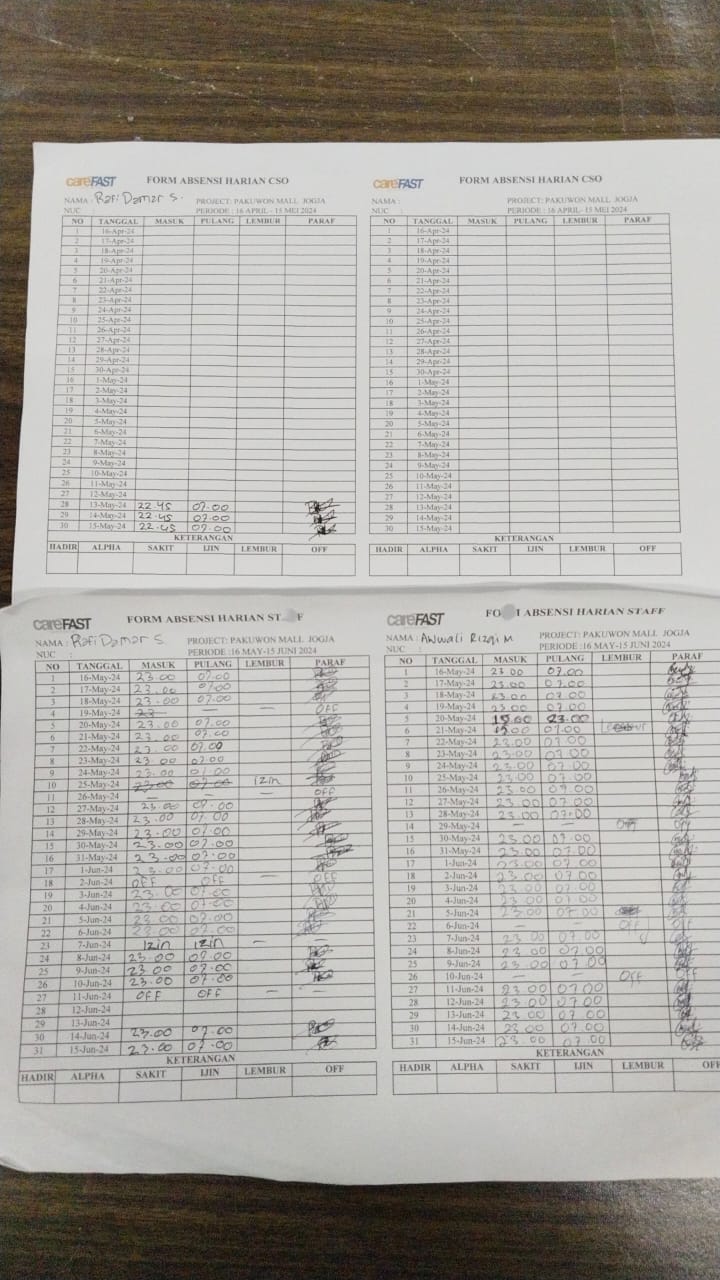 careFAST FORM ABSENSI HARIAN CSO
NAMA : Rafi Damar S. PROJECT: PAKUWON MALL JOGJA
NUC : PERIODE : 16 APRIL - 15 MEI 2024
NO TANGGAL MASUK PULANG LEMBUR PARAF
1 16-Apr-24
2 17-Apr-24
3 18-Apr-24
4 19-Apr-24
5 20-Apr-24
6 21-Apr-24
7 22-Apr-24
8 23-Apr-24
9 24-Apr-24
10 25-Apr-24
11 26-Apr-24
12 27-Apr-24
13 28-Apr-24
14 29-Apr-24
15 30-Apr-24
16 1-May-24
17 2-May-24
18 3-May-24
19 4-May-24
20 5-May-24
21 6-May-24
22 7-May-24
23 8-May-24
24 9-May-24
25 10-May-24
26 11-May-24
27 12-May-24
28 13-May-24 22.45 07.00
29 14-May-24 22.45 07.00
30 15-May-24 22.45 07.00
KETERANGAN
HADIR ALPHA SAKIT IJIN LEMBUR OFF
careFAST FORM ABSENSI HARIAN CSO
NAMA : PROJECT: PAKUWON MALL JOGJA
NUC : PERIODE : 16 APRIL- 15 MEI 2024
NO TANGGAL MASUK PULANG LEMBUR PARAF
1 16-Apr-24
2 17-Apr-24
3 18-Apr-24
4 19-Apr-24
5 20-Apr-24
6 21-Apr-24
7 22-Apr-24
8 23-Apr-24
9 24-Apr-24
10 25-Apr-24
11 26-Apr-24
12 27-Apr-24
13 28-Apr-24
14 29-Apr-24
15 30-Apr-24
16 1-May-24
17 2-May-24
18 3-May-24
19 4-May-24
20 5-May-24
21 6-May-24
22 7-May-24
23 8-May-24
24 9-May-24
25 10-May-24
26 11-May-24
27 12-May-24
28 13-May-24
29 14-May-24
30 15-May-24
KETERANGAN
HADIR ALPHA SAKIT IJIN LEMBUR OFF
careFAST FORM ABSENSI HARIAN ST F
NAMA : Rafi Damar S PROJECT: PAKUWON MALL JOGJA
NUC : PERIODE :16 MAY-15 JUNI 2024
NO TANGGAL MASUK PULANG LEMBUR PARAF
1 16-May-24 23.00 07.00
2 17-May-24 23.00 07.00
3 18-May-24 23.00 07.00
4 19-May-24 23 — — OFF
5 20-May-24 23.00 07.00
6 21-May-24 23.00 07.00
7 22-May-24 23.00 07.00
8 23-May-24 23.00 07.00
9 24-May-24 23.00 07.00
10 25-May-24 23.00 07.00 Izin
11 26-May-24 — — — OFF
12 27-May-24 23.00 07.00
13 28-May-24 23.00 07.00
14 29-May-24 23.00 07.00
15 30-May-24 23.00 07.00
16 31-May-24 23.00 07.00
17 1-Jun-24 23.00 07.00
18 2-Jun-24 OFF OFF — OFF
19 3-Jun-24 23.00 07.00
20 4-Jun-24 23.00 07.00
21 5-Jun-24 23.00 07.00
22 6-Jun-24 23.00 07.00
23 7-Jun-24 Izin Izin — —
24 8-Jun-24 23.00 07.00
25 9-Jun-24 23.00 07.00
26 10-Jun-24 23.00 07.00
27 11-Jun-24 OFF OFF — —
28 12-Jun-24
29 13-Jun-24
30 14-Jun-24 23.00 07.00
31 15-Jun-24 23.00 07.00
KETERANGAN
HADIR ALPHA SAKIT IJIN LEMBUR OFF
careFAST FO M ABSENSI HARIAN STAFF
NAMA : Awwali Rizqi M PROJECT: PAKUWON MALL JOGJA
NUC : PERIODE :16 MAY-15 JUNI 2024
NO TANGGAL MASUK PULANG LEMBUR PARAF
1 16-May-24 23 00 07.00
2 17-May-24 23.00 07.00
3 18-May-24 23.00 07.00
4 19-May-24 23.00 07.00
5 20-May-24 15.00 23.00
6 21-May-24 07.00
7 22-May-24 23.00 07.00
8 23-May-24 23.00 07.00
9 24-May-24 23.00 07.00
10 25-May-24 23.00 07.00
11 26-May-24 23.00 07.00
12 27-May-24 23.00 07.00
13 28-May-24 23.00 07.00
14 29-May-24 — — Off
15 30-May-24 23.00 07.00
16 31-May-24 23.00 07.00
17 1-Jun-24 23.00 07.00
18 2-Jun-24 23.00 07.00
19 3-Jun-24 23.00 07.00
20 4-Jun-24 23.00 07.00
21 5-Jun-24 23.00 07.00
22 6-Jun-24 — — OFF Off
23 7-Jun-24 23.00 07.00
24 8-Jun-24 23.00 07.00
25 9-Jun-24 23.00 07.00
26 10-Jun-24 — — OFF OFF
27 11-Jun-24 23.00 07.00
28 12-Jun-24 23.00 07.00
29 13-Jun-24 23.00 07.00
30 14-Jun-24 23.00 07.00
31 15-Jun-24 23.00 07.00
KETERANGAN
HADIR ALPHA SAKIT IJIN LEMBUR OFF